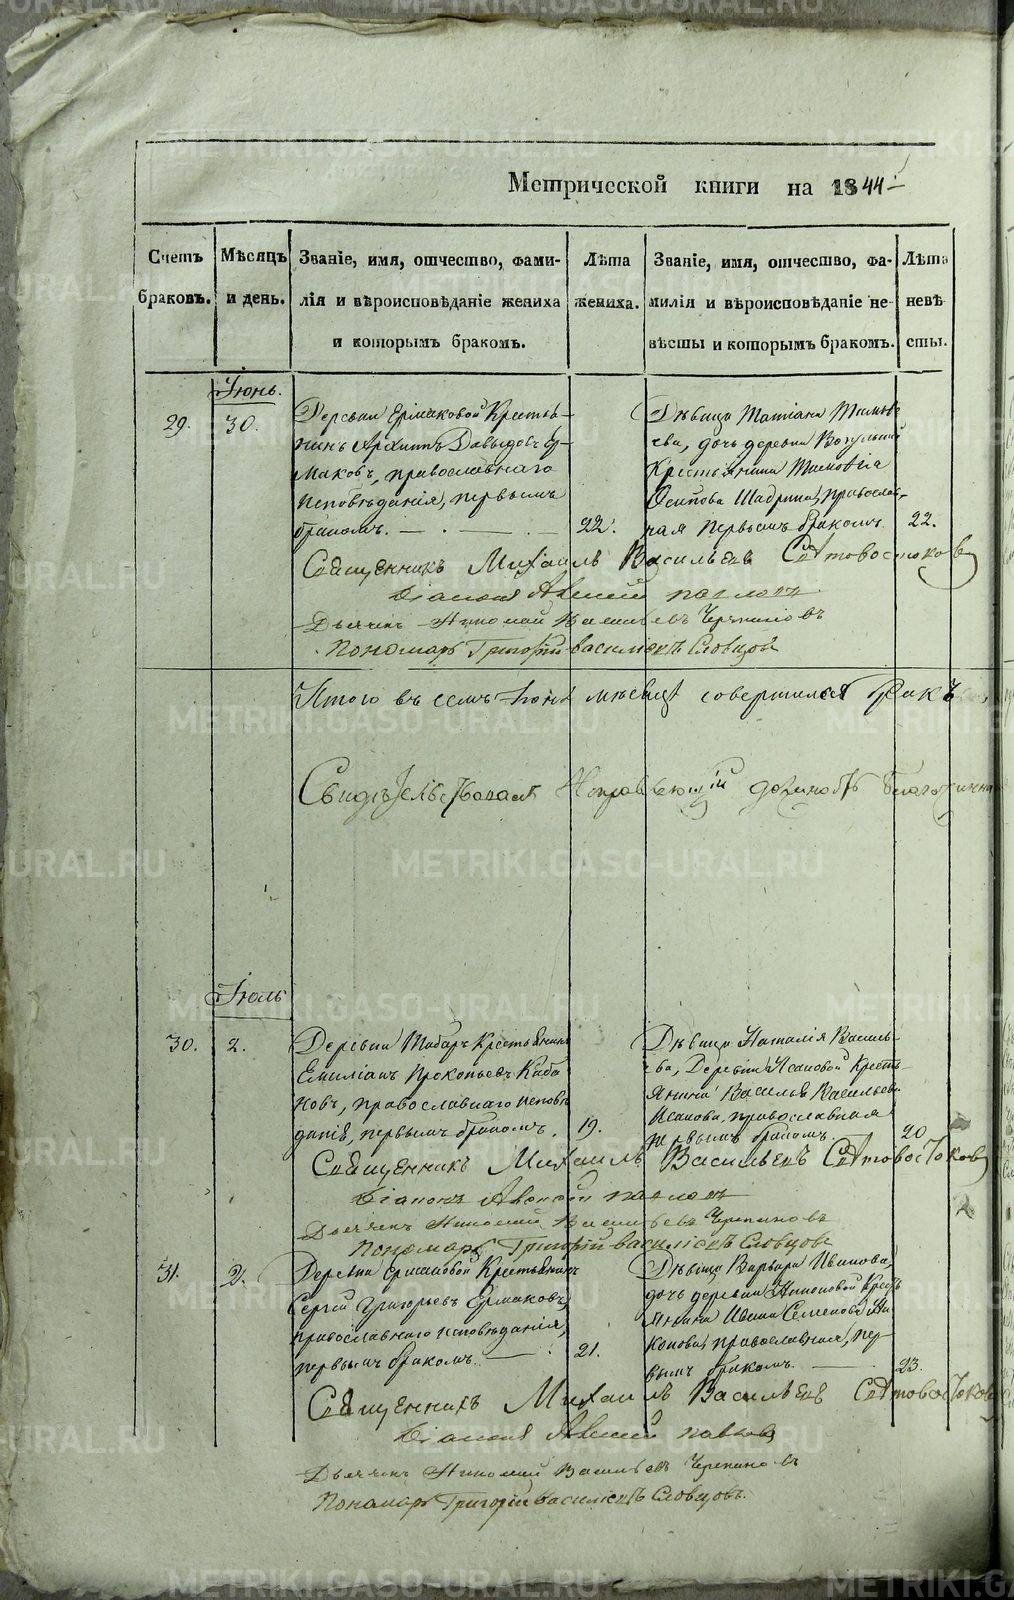 Метрической книги на 1844
Счетъ браковъ.
Мѣсяцъ и день.
Званіе, имя, отчество, фами-
лія и вѣроисповѣданіе жениха
и которымъ бракомъ.
Лѣта жениха.
Званіе, имя, отчество, фа-
милія и вѣроисповѣданіе не-
вѣсты и которымъ бракомъ.
Лѣта невѣ
сты.
Іюнь.
29.
30.
Деревни Ермаковой Крестья-
нинъ Архипъ Давыдовъ Ер-
маковъ, православнаго
исповѣданія, первымъ
бракомъ.
22.
Дѣвица Татіана Тимоѳе
ева, дочь деревни
Крестьянина Тимоѳея
Осипова Шадрина, православ-
ная первымъ бракомъ.
22.
Священникъ Михаилъ Васильевъ Святовостоковъ
Діаконъ Алексій Павловъ
Дьячекъ Николай Васильевъ Черепановъ
Пономарь Григорій Васильевъ Словцовъ
Итого въ семъ Іюнѣ мѣсяцѣ совершился бракъ
Свидѣтельствовалъ Исправляющій должность Благочинна
Іюль
30.
2.
Деревни Табаръ Крестьянинъ
Емиліанъ Прокопьевъ Каба
ковъ, православнаго исповѣ
данія, первымъ бракомъ.
19.
Дѣвица Наталія Василь-
ева, Деревни Исаковой Кресть-
янина Василья Васильева
Исакова, православная
первымъ бракомъ.
20
Священникъ Михаилъ Васильевъ Святовостоковъ
Діаконъ Алексій Павловъ
Дьячекъ Николай Васильевъ Черепановъ
Пономарь Григорій Васильевъ Словцовъ
31.
2.
Деревни Ермаковой Крестьянинъ
Сергій Григорьевъ Ермаковъ,
православнаго исповѣданія,
первымъ бракомъ.
21.
Дѣвица Варвара Иванова,
дочь деревни Никоновой Кресть
янина Ивана Семенова Ни-
конова, православная, пер-
вымъ бракомъ.
23.
Священникъ Михаилъ Васильевъ Святовостоковъ
Діаконъ Алексій Павловъ
Дьячекъ Николай Васильевъ Черепановъ
Пономарь Григорій Васильевъ Словцовъ.
METRIKI.GASO-URAL.RU